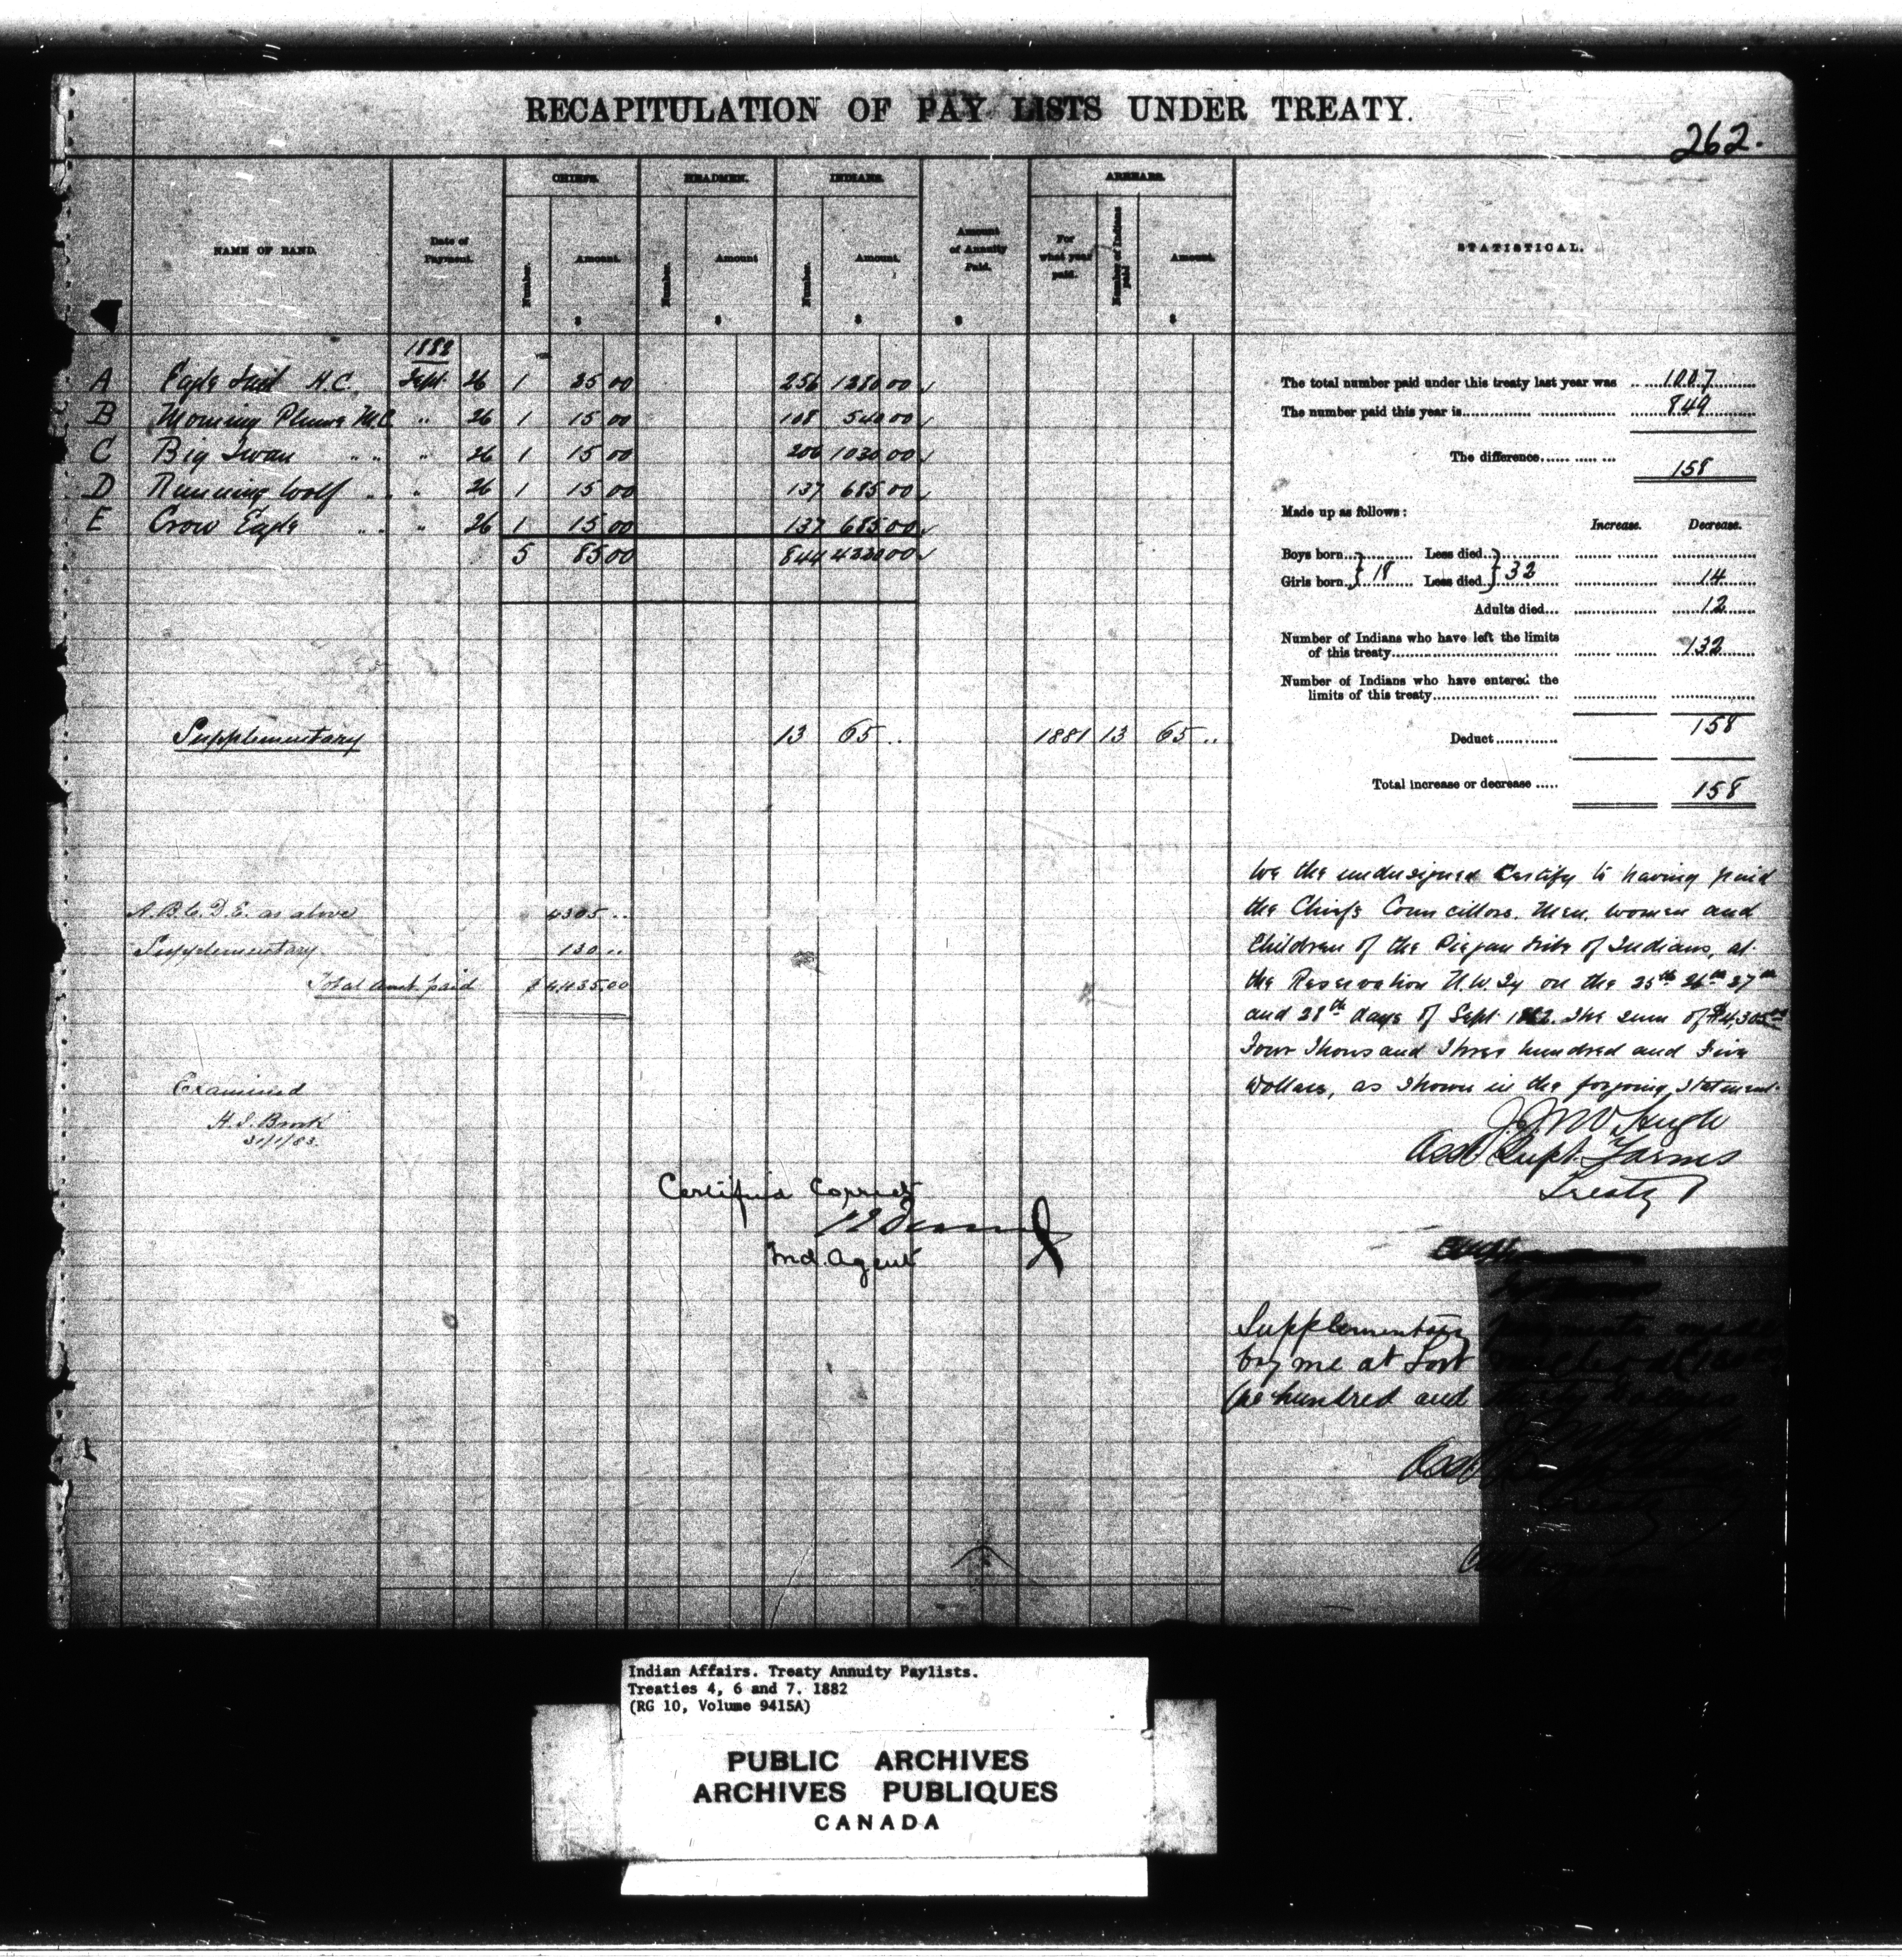 RECAPITULATION OF PAY LISTS UNDER TREATY.
262.
NAME OF BAND.
Date of Payment.
CHIEFS.
Number.
Amount.
$
HEADMEN.
Number.
Amount
$
INDIANS.
Number.
Amount.
$
Amount of Annuity Paid.
$
ARREARS.
For what year paid.
Number of Indians paid
Amount.
$
STATISTICAL.
1882
A Eagle Tail H.C. Sept. 26 1 25 00 256 1280 00
B Morning Plume M.C. " 26 1 15 00 108 540 00
C Big Swan " " " 26 1 15 00 206 1030 00
D Running Wolf " " " 26 1 15 00 137 685 00
E Crow Eagle " " " 26 1 15 00 137 685 00
5 85 00 844 4220 00
Supplementary 13 65 .. 1881 13 65 ..
A.B.C.D.E. as above 4305 ..
Supplementary 130 ..
Total amt. paid $ 4435 00
Examined
H.S. Brook
31/1/83.
Certified Correct
Ind. Agent
The total number paid under this treaty last year was 1007
The number paid this year is 849
The difference 158
Made up as follows:
Increase. Decrease.
Boys born Less died
Girls born } 18 Less died } 32 14
Adults died 12
Number of Indians who have left the limits
of this treaty 132
Number of Indians who have entered the
limits of this treaty
Deduct 158
Total increase or decrease 158
We the undersigned Certify to having paid
the Chiefs Councillors. Men, women and
Children of the Piegan tribe of Indians, at
the Reservation N.W.Ty on the 25th 26th 27th
and 28th days of Sept. 1882. The sum of $4,305.00
Four Thousand Three hundred and Five
Dollars, as shown in the forgoing statement.
Asst. Supt. Farms
Treaty 7
Supplementary payments
by me at Fort
One hundred and
Indian Affairs. Treaty Annuity Paylists.
Treaties 4, 6 and 7. 1882
(RG 10, Volume 9415A)
PUBLIC ARCHIVES
ARCHIVES PUBLIQUES
CANADA